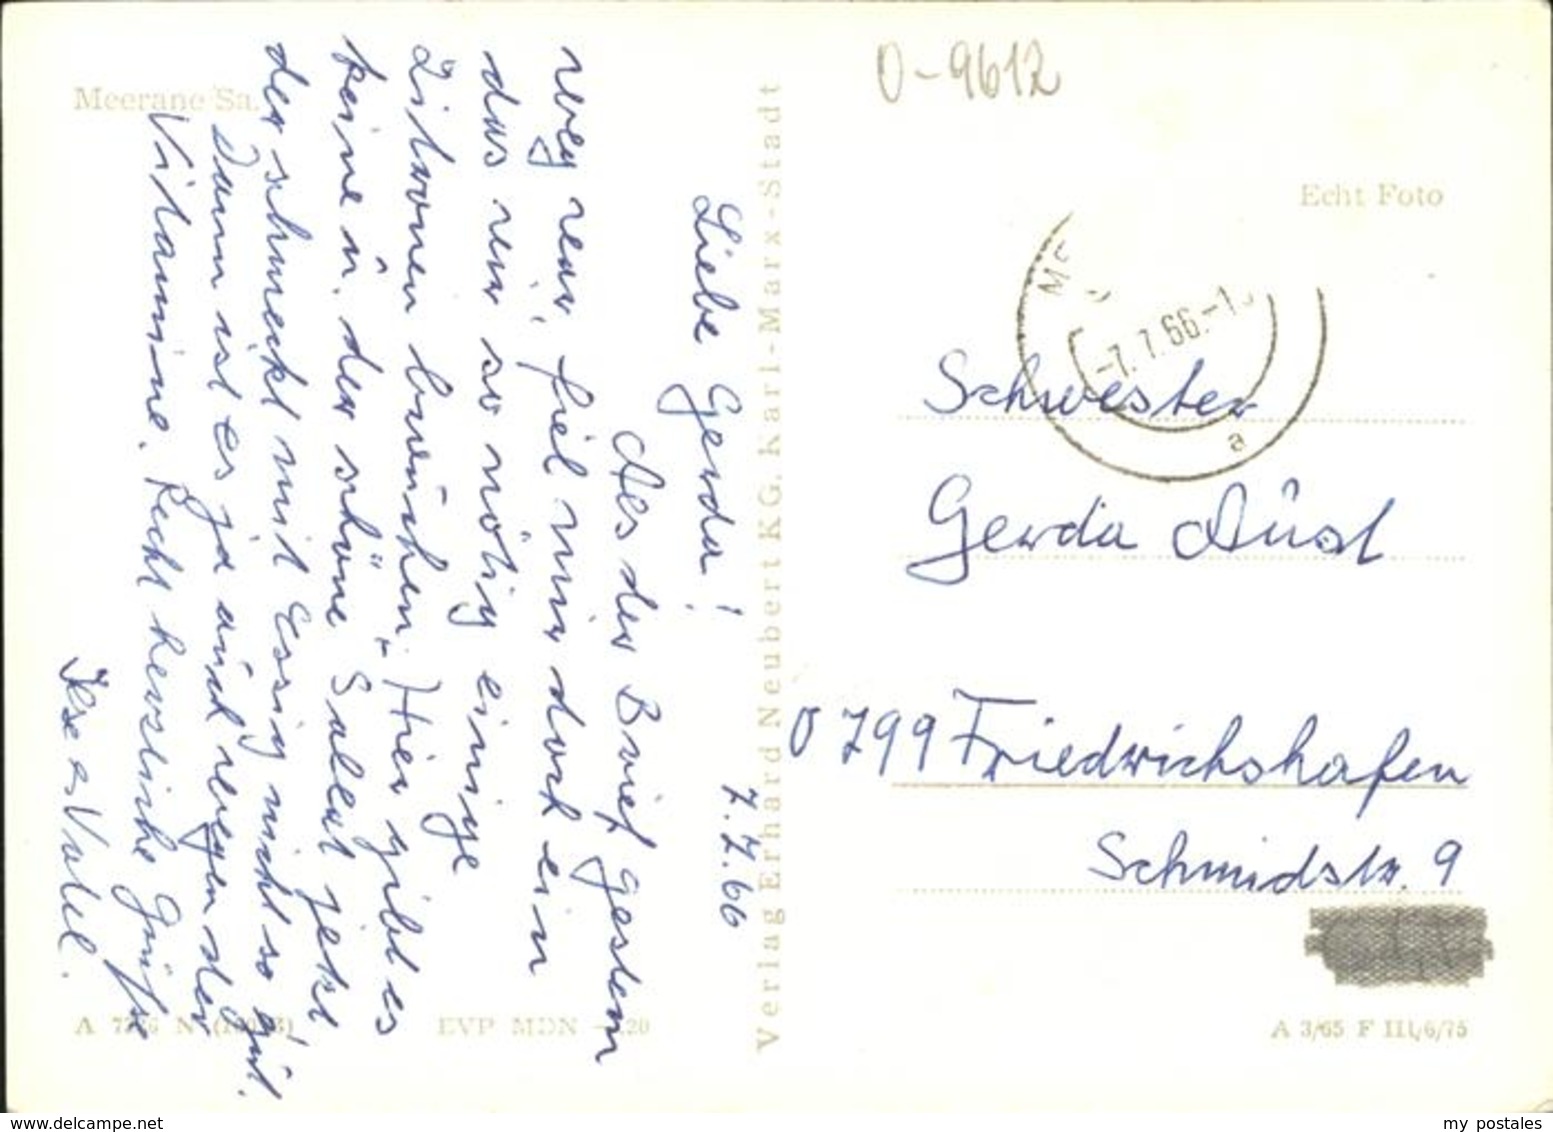 Meerane Sa.
O-9612
Echt Foto
-7.7.66.-1
a
7.7.66
Liebe Gerda!
Als der Brief gestern
weg war, fiel mir doch ein
das wir so nötig einige
Zitronen bräuchten. Hier gibt es
keine u. der schöne Salat jetzt,
der schmeckt mit Essig nicht so gut.
Dann ist es ja auch wegen der
Vitamine. Recht herzliche Grüße
Ilse u Vati.
Verlag Erhard Neubert KG. Karl-Marx-Stadt
Schwester
Gerda Aüst
O 799 Friedrichshafen
Schmidstr. 9
EVP MDN -.20
A 3/65 F III/6/75
www.delcampe.net
my postales